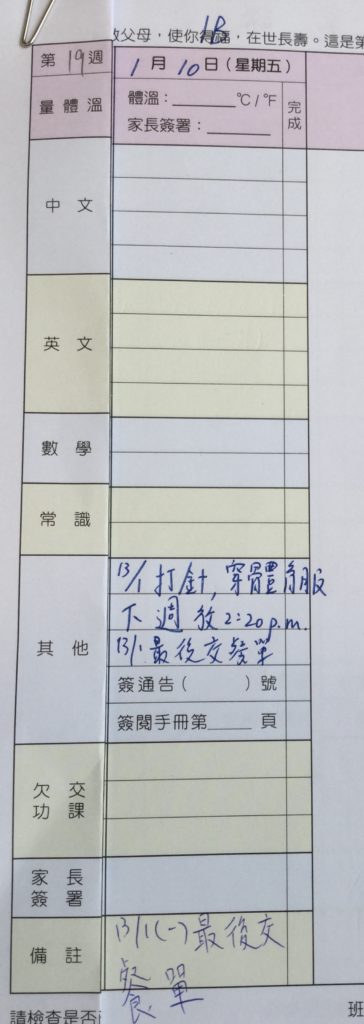 父母，使你得福，在世長壽。這是第
1B
第 19 週 1 月 10 日 (星期五)
量體溫 體溫：______ °C / °F 完成
家長簽署：______
中文
英文
數學
常識
其他 13/1 打針, 穿體育服
下週放 2:20 p.m.
13/1 最後交餐單
簽通告 ( ) 號
簽閱手冊第____頁
欠交功課
家長簽署
備註 13/1(一) 最後交
餐單
請檢查是否 班